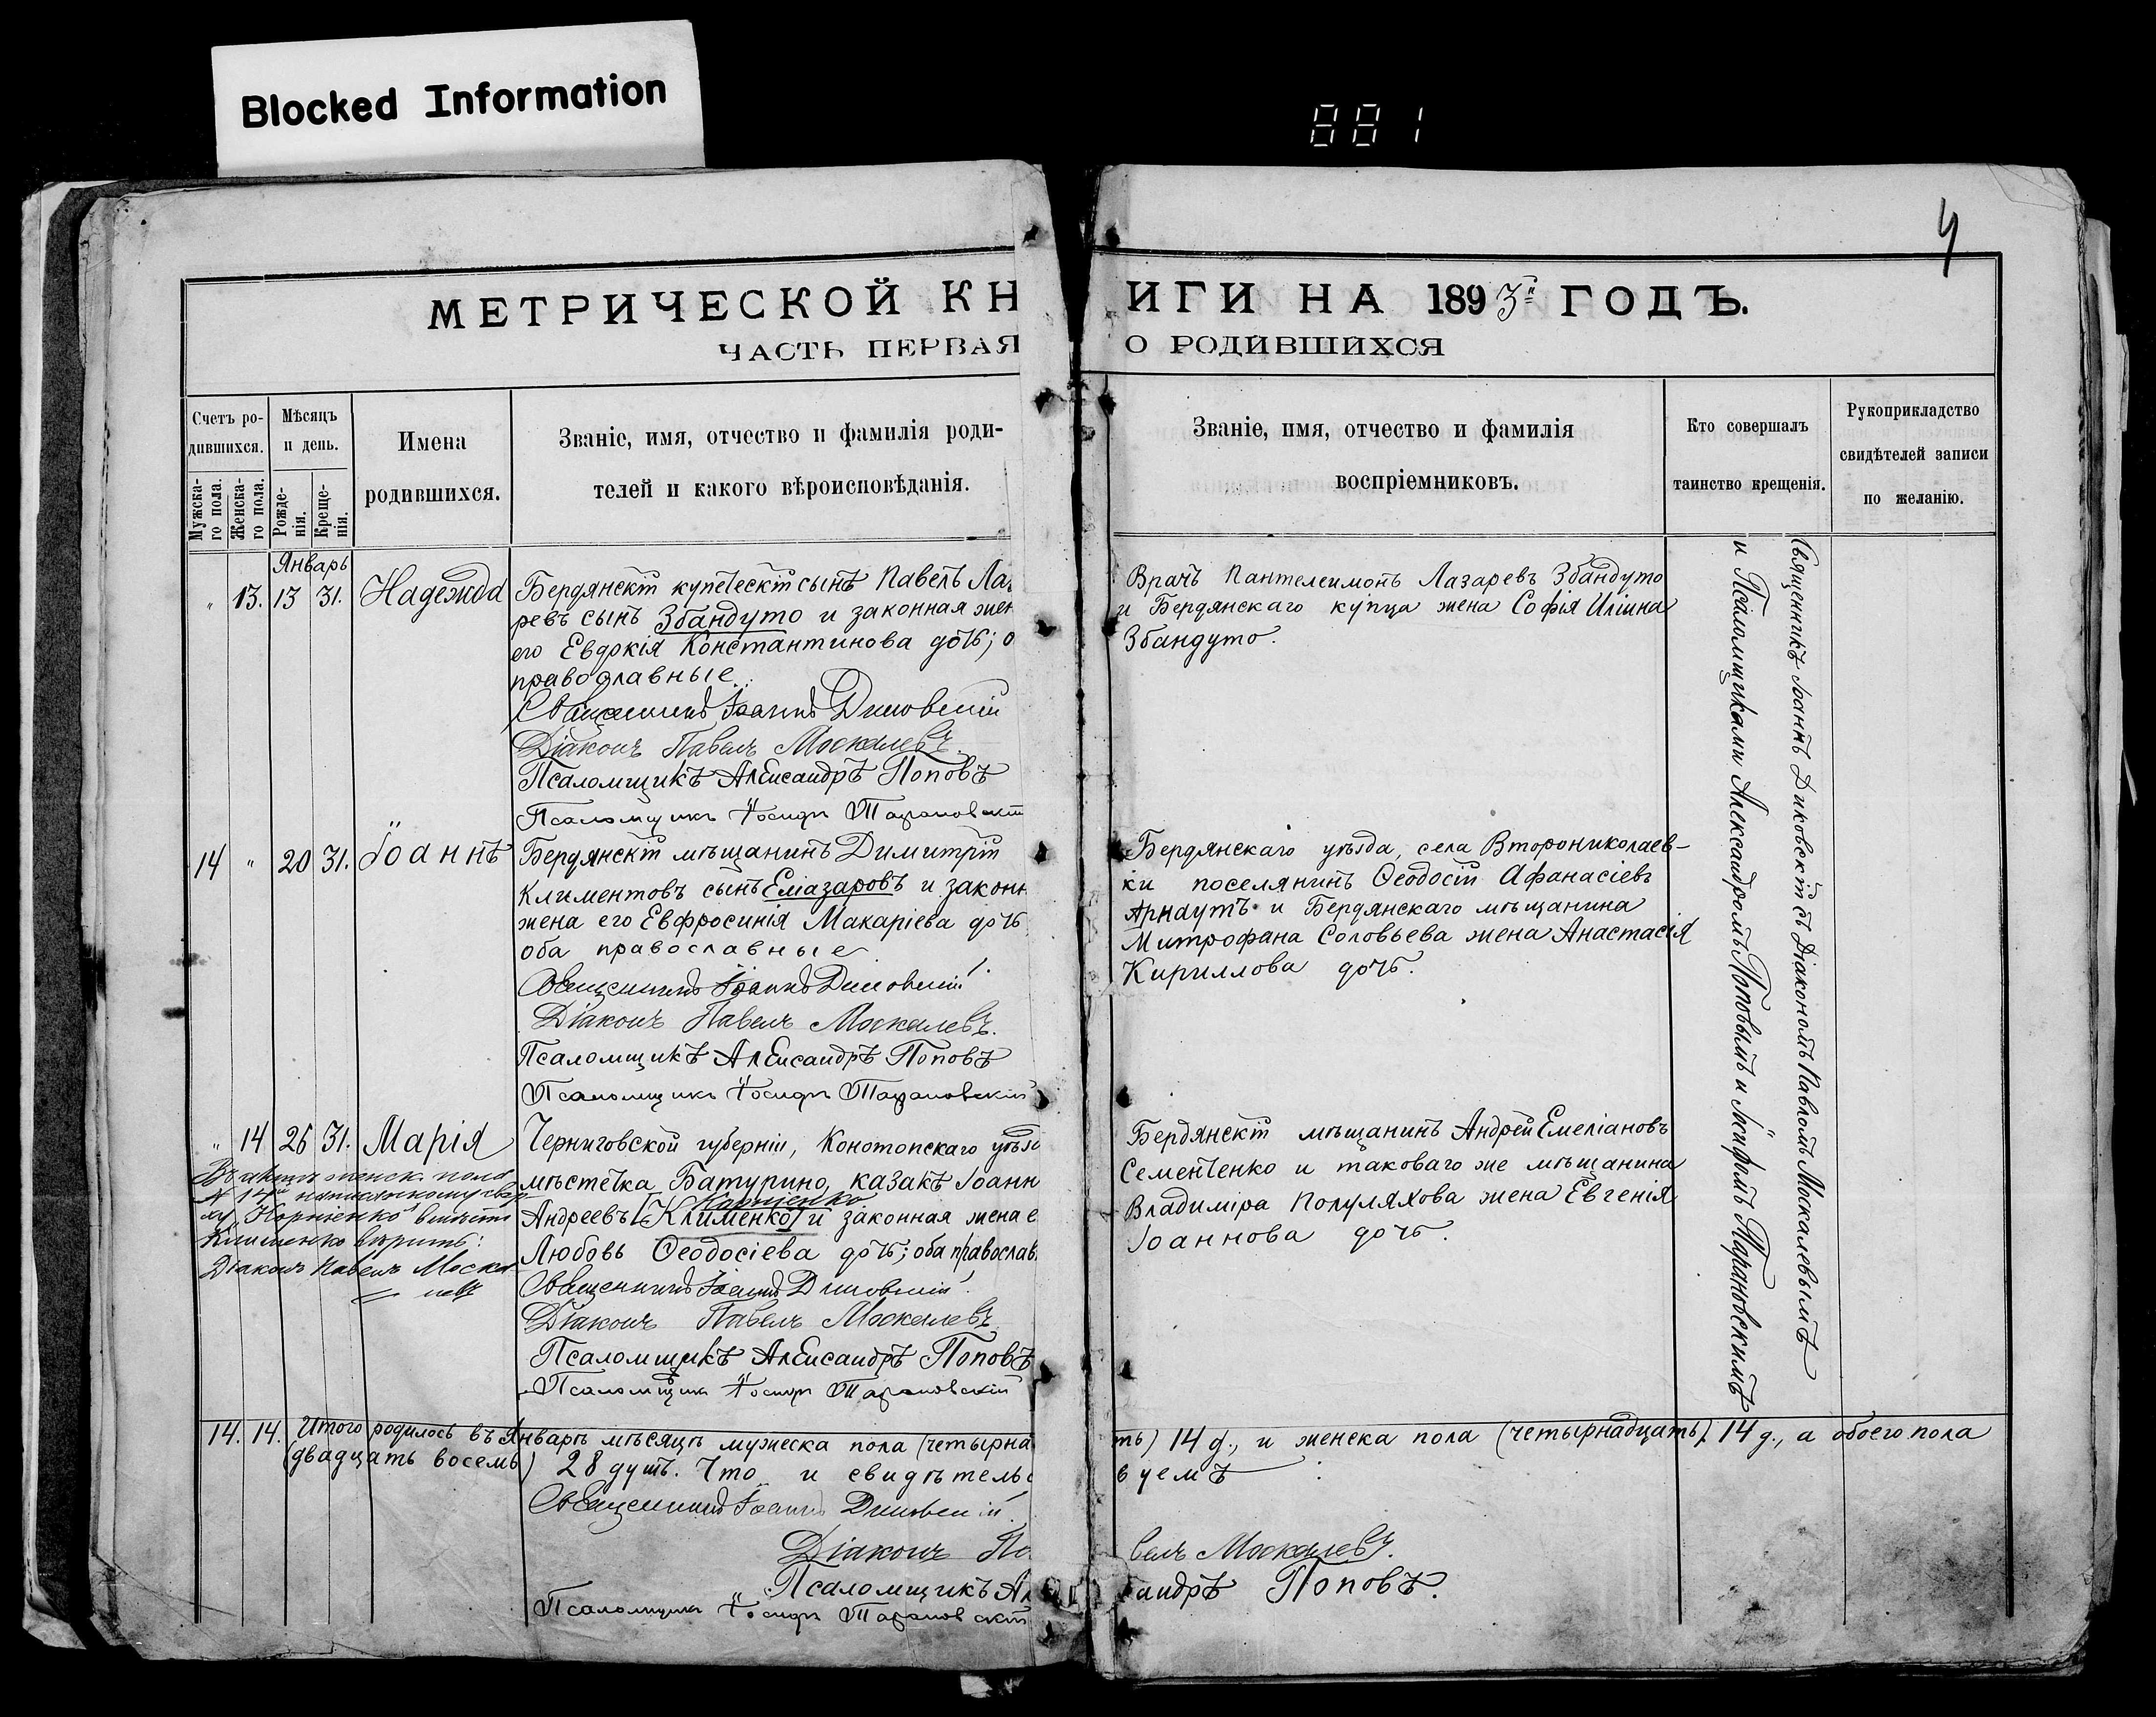 Blocked Information
881
4
МЕТРИЧЕСКОЙ КН
ИГИ НА 1893й ГОДЪ.
ЧАСТЬ ПЕРВАЯ
О РОДИВШИХСЯ
Счетъ ро-
дившихся.
Мужска-
го пола.
Женска-
го пола.
Мѣсяцъ
и день.
Рожде-
нія.
Креще-
нія.
Имена
родившихся.
Званіе, имя, отчество и фамилія роди-
телей и какого вѣроисповѣданія.
Званіе, имя, отчество и фамилія
воспріемниковъ.
Кто совершалъ
таинство крещенія.
Рукоприкладство
свидѣтелей записи
по желанію.
Январь
" 13. 13 31. Надежда
Бердянскій купеческій сынъ Павелъ Лаза
ревъ сынъ Збандуто и законная жен
его Евдокія Константинова дочь; о
православные.
Священникъ Іоаннъ Диковскій
Діаконъ Павелъ Москалевъ.
Псаломщикъ Александръ Поповъ
Псаломщикъ Іосифъ Тарановскій
Врачъ Пантелеимонъ Лазаревъ Збандуто
и Бердянскаго купца жена Софія Иліина
Збандуто.
14 " 20 31. Іоаннъ
Бердянскій мѣщанинъ Димитрій
Климентовъ сынъ Еліазаровъ и законн
жена его Евфросинія Макаріева дочь
оба православные
Священникъ Іоаннъ Диковскій.
Діаконъ Павелъ Москалевъ.
Псаломщикъ Александръ Поповъ
Псаломщикъ Іосифъ Тарановскій
Бердянскаго уѣзда, села Второниколаев-
ки поселянинъ Ѳеодосій Афанасіевъ
Арнаутъ и Бердянскаго мѣщанина
Митрофана Соловьева жена Анастасія
Кириллова дочь.
" 14 26 31. Марія
Черниговской губерніи, Конотопскаго уѣз
мѣстечка Батурино, казакъ Іоанн
Корніенко
Андреевъ [Клименко] и законная жена е
Любовь Ѳеодосіева дочь; оба православ
Священникъ Іоаннъ Диковскій.
Діаконъ Павелъ Москалевъ.
Псаломщикъ Александръ Поповъ
Псаломщикъ Іосифъ Тарановскій
женск. пола
№ 14й написанному свер
ху "Корніенко" вмѣсто
Клименко вѣрить:
Діаконъ Павелъ Моска
левъ
Бердянскій мѣщанинъ Андрей Емеліановъ
Семенченко и таковаго же мѣщанина
Владиміра Полуляхова жена Евгенія
Іоаннова дочь.
Священникъ Іоаннъ Диковскій съ Діакономъ Павломъ Москалевымъ
и Псаломщиками Александромъ Поповымъ и Іосифомъ Тарановскимъ
14. 14. Итого родилось въ Январѣ мѣсяцѣ мужеска пола (четырна
ть) 14 д., и женска пола (четырнадцать) 14 д., а обоего пола
(двадцать восемь) 28 душъ. Что и свидѣтельс
вуемъ :
Священникъ Іоаннъ Диковскій.
Діаконъ Па
велъ Москалевъ.
Псаломщикъ Ал
сандръ Поповъ.
Псаломщикъ Іосифъ Тарановскій